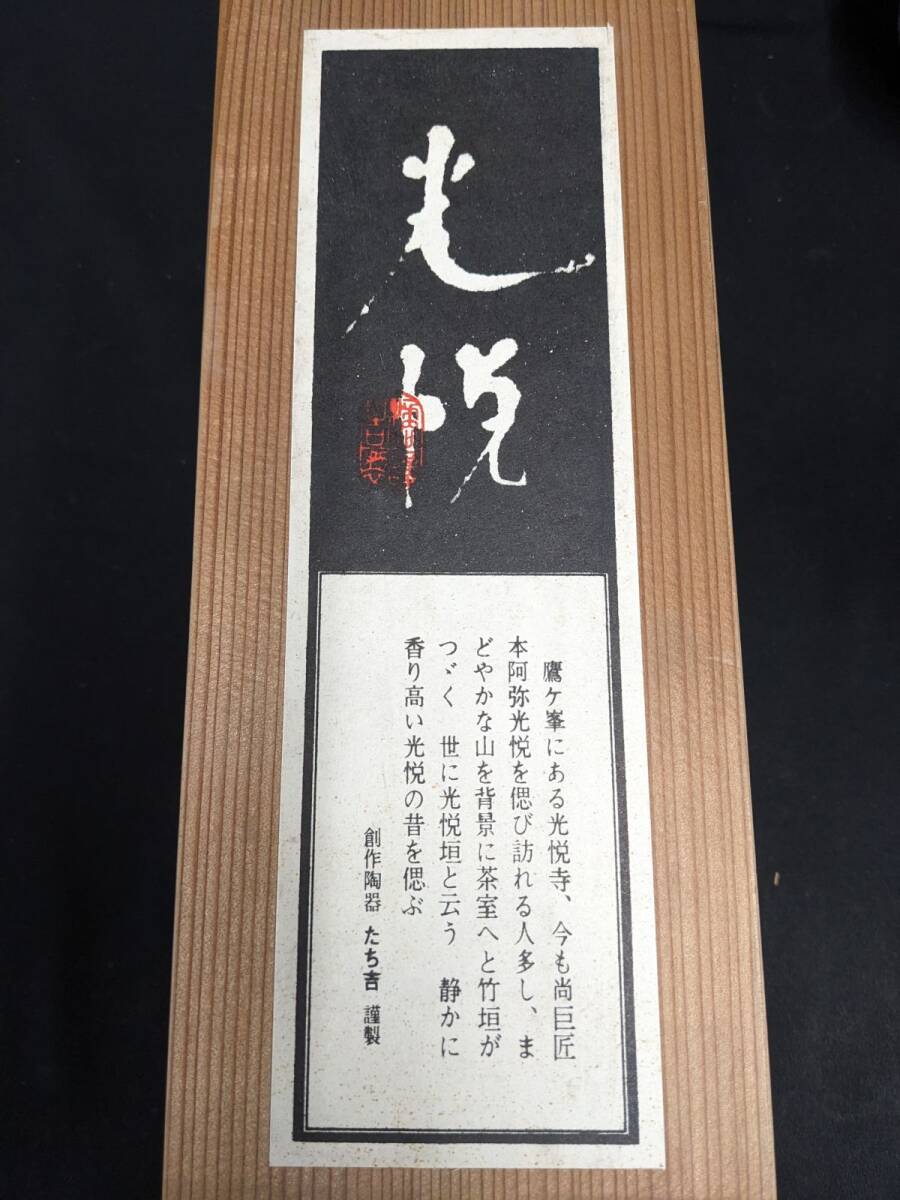 光悦
鷹ケ峯にある光悦寺、今も尚巨匠
本阿弥光悦を偲び訪れる人多し、ま
どやかな山を背景に茶室へと竹垣が
つゞく　世に光悦垣と云う　静かに
香り高い光悦の昔を偲ぶ
創作陶器 たち吉 謹製